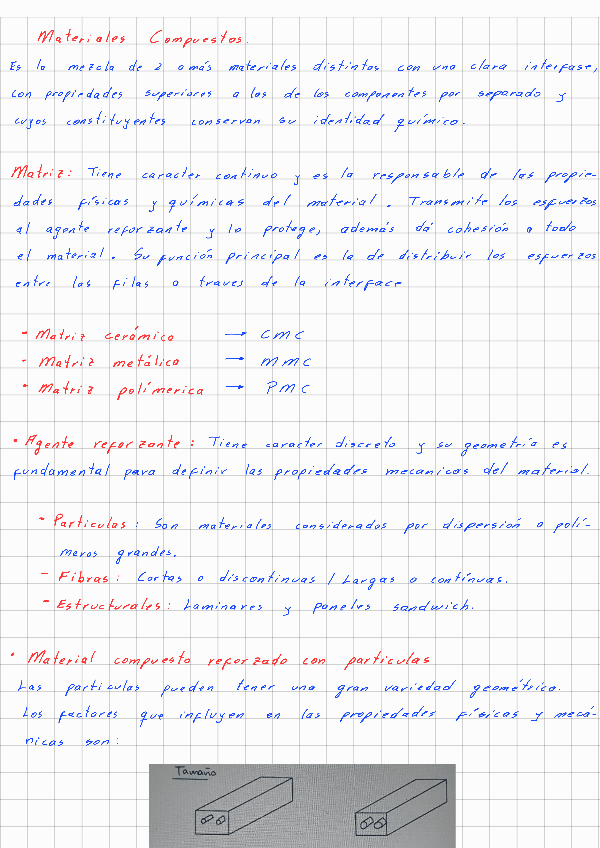 Materiales Compuestos.
Es la mezcla de 2 o más materiales distintos con una clara interfase,
con propiedades superiores a las de los componentes por separado y
cuyos constituyentes conservan su identidad química.
Matriz: Tiene caracter continuo y es la responsable de las propie-
dades físicas y químicas del material. Transmite los esfuerzos
al agente reforzante y lo protege, además dá cohesión a todo
el material. Su función principal es la de distribuir los esfuerzos
entre las filas a traves de la interface
- Matriz cerámica → CMC
- Matriz metálica → MMC
• Matriz polímerica → PMC
• Agente reforzante: Tiene caracter discreto y su geometría es
fundamental para definir las propiedades mecanicas del material.
- Particulas: Son materiales considerados por dispersión o polí-
meros grandes.
- Fibras: Cortas o discontinuas / Largas o contínuas.
- Estructurales: Laminares y paneles sandwich.
• Material compuesto reforzado con particulas
Las particulas pueden tener una gran variedad geométrica.
Los factores que influyen en las propiedades físicas y mecá-
nicas son:
Tamaño